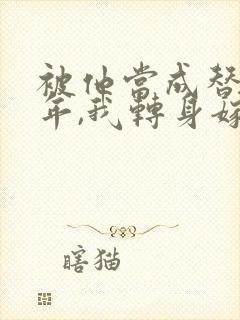 被他當成替
年,我轉身嫁
瞎猫